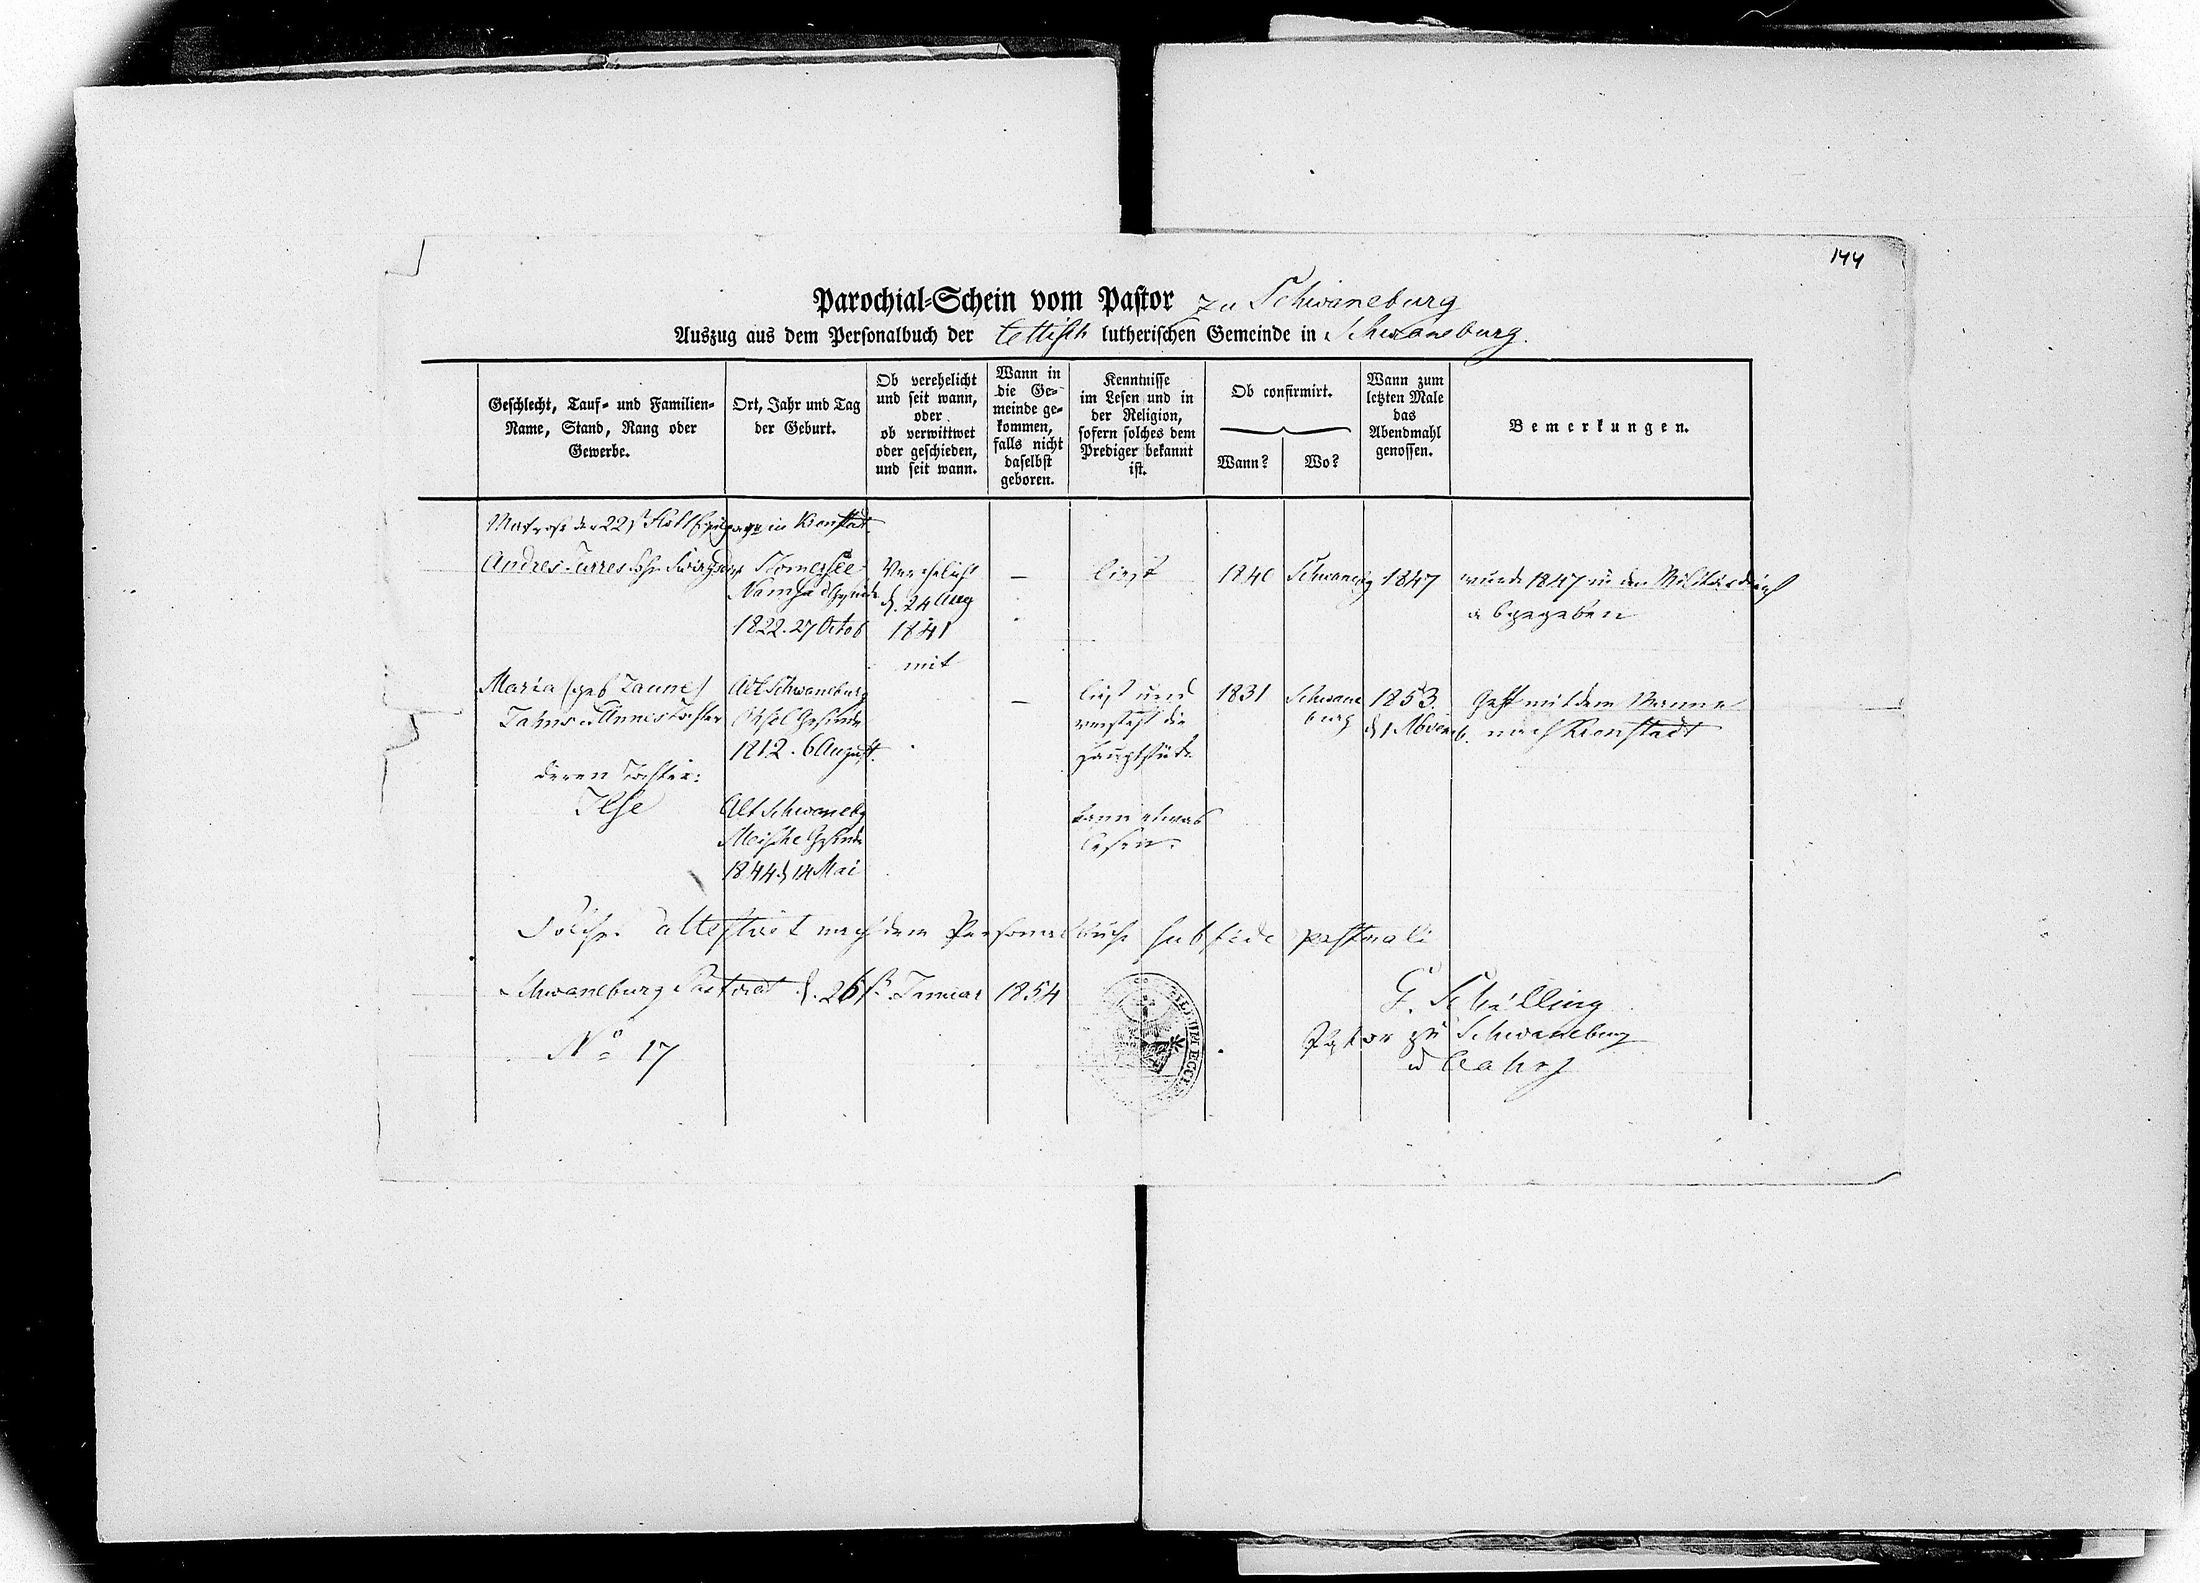 144
Parochial-Schein vom Pastor zu Schwaneburg
Auszug aus dem Personalbuch der lettisch lutherischen Gemeinde in Schwaneburg.
Geschlecht, Tauf- und Familien-
Name, Stand, Rang oder
Gewerbe.
Ort, Jahr und Tag
der Geburt.
Ob verehelicht
und seit wann,
oder
ob verwittwet
oder geschieden,
und seit wann.
Wann in
die Ge-
meinde ge-
kommen,
falls nicht
daselbst
geboren.
Kenntnisse
im Lesen und in
der Religion,
sofern solches dem
Prediger bekannt
ist.
Ob confirmirt.
Wann?
Wo?
Wann zum
letzten Male
das
Abendmahl
genossen.
Bemerkungen.
Matrose der 22st Flott Equipage in Kronstadt
Andres Jurres Sohn
Gesinde
1822. 27 Octob
Verehelicht
d. 24 Aug
1841
mit
—
liest
1840
Schwanebg
1847
wurde 1847 in den Militärdienst
abgegeben
Maria (geb Zaune)
Jahns u Annes Tochter
Alt Schwaneburg
Gesinde
1812. 6 August.
—
liest und
versteht die
Hauptstücke
1831
Schwane
burg
1853.
d 1 Novemb.
Geht mit dem Manne
nach Kronstadt
deren Tochter:
Ilse
Alt Schwanebg
Gesinde
1844 d 14 Mai
kann etwas
lesen.
Solches attestirt nach dem Personalbuche sub fide pastorali
Schwaneburg Pastorat d. 26st Januar 1854
G. Schilling
Pastor zu Schwaneburg
u
No 17